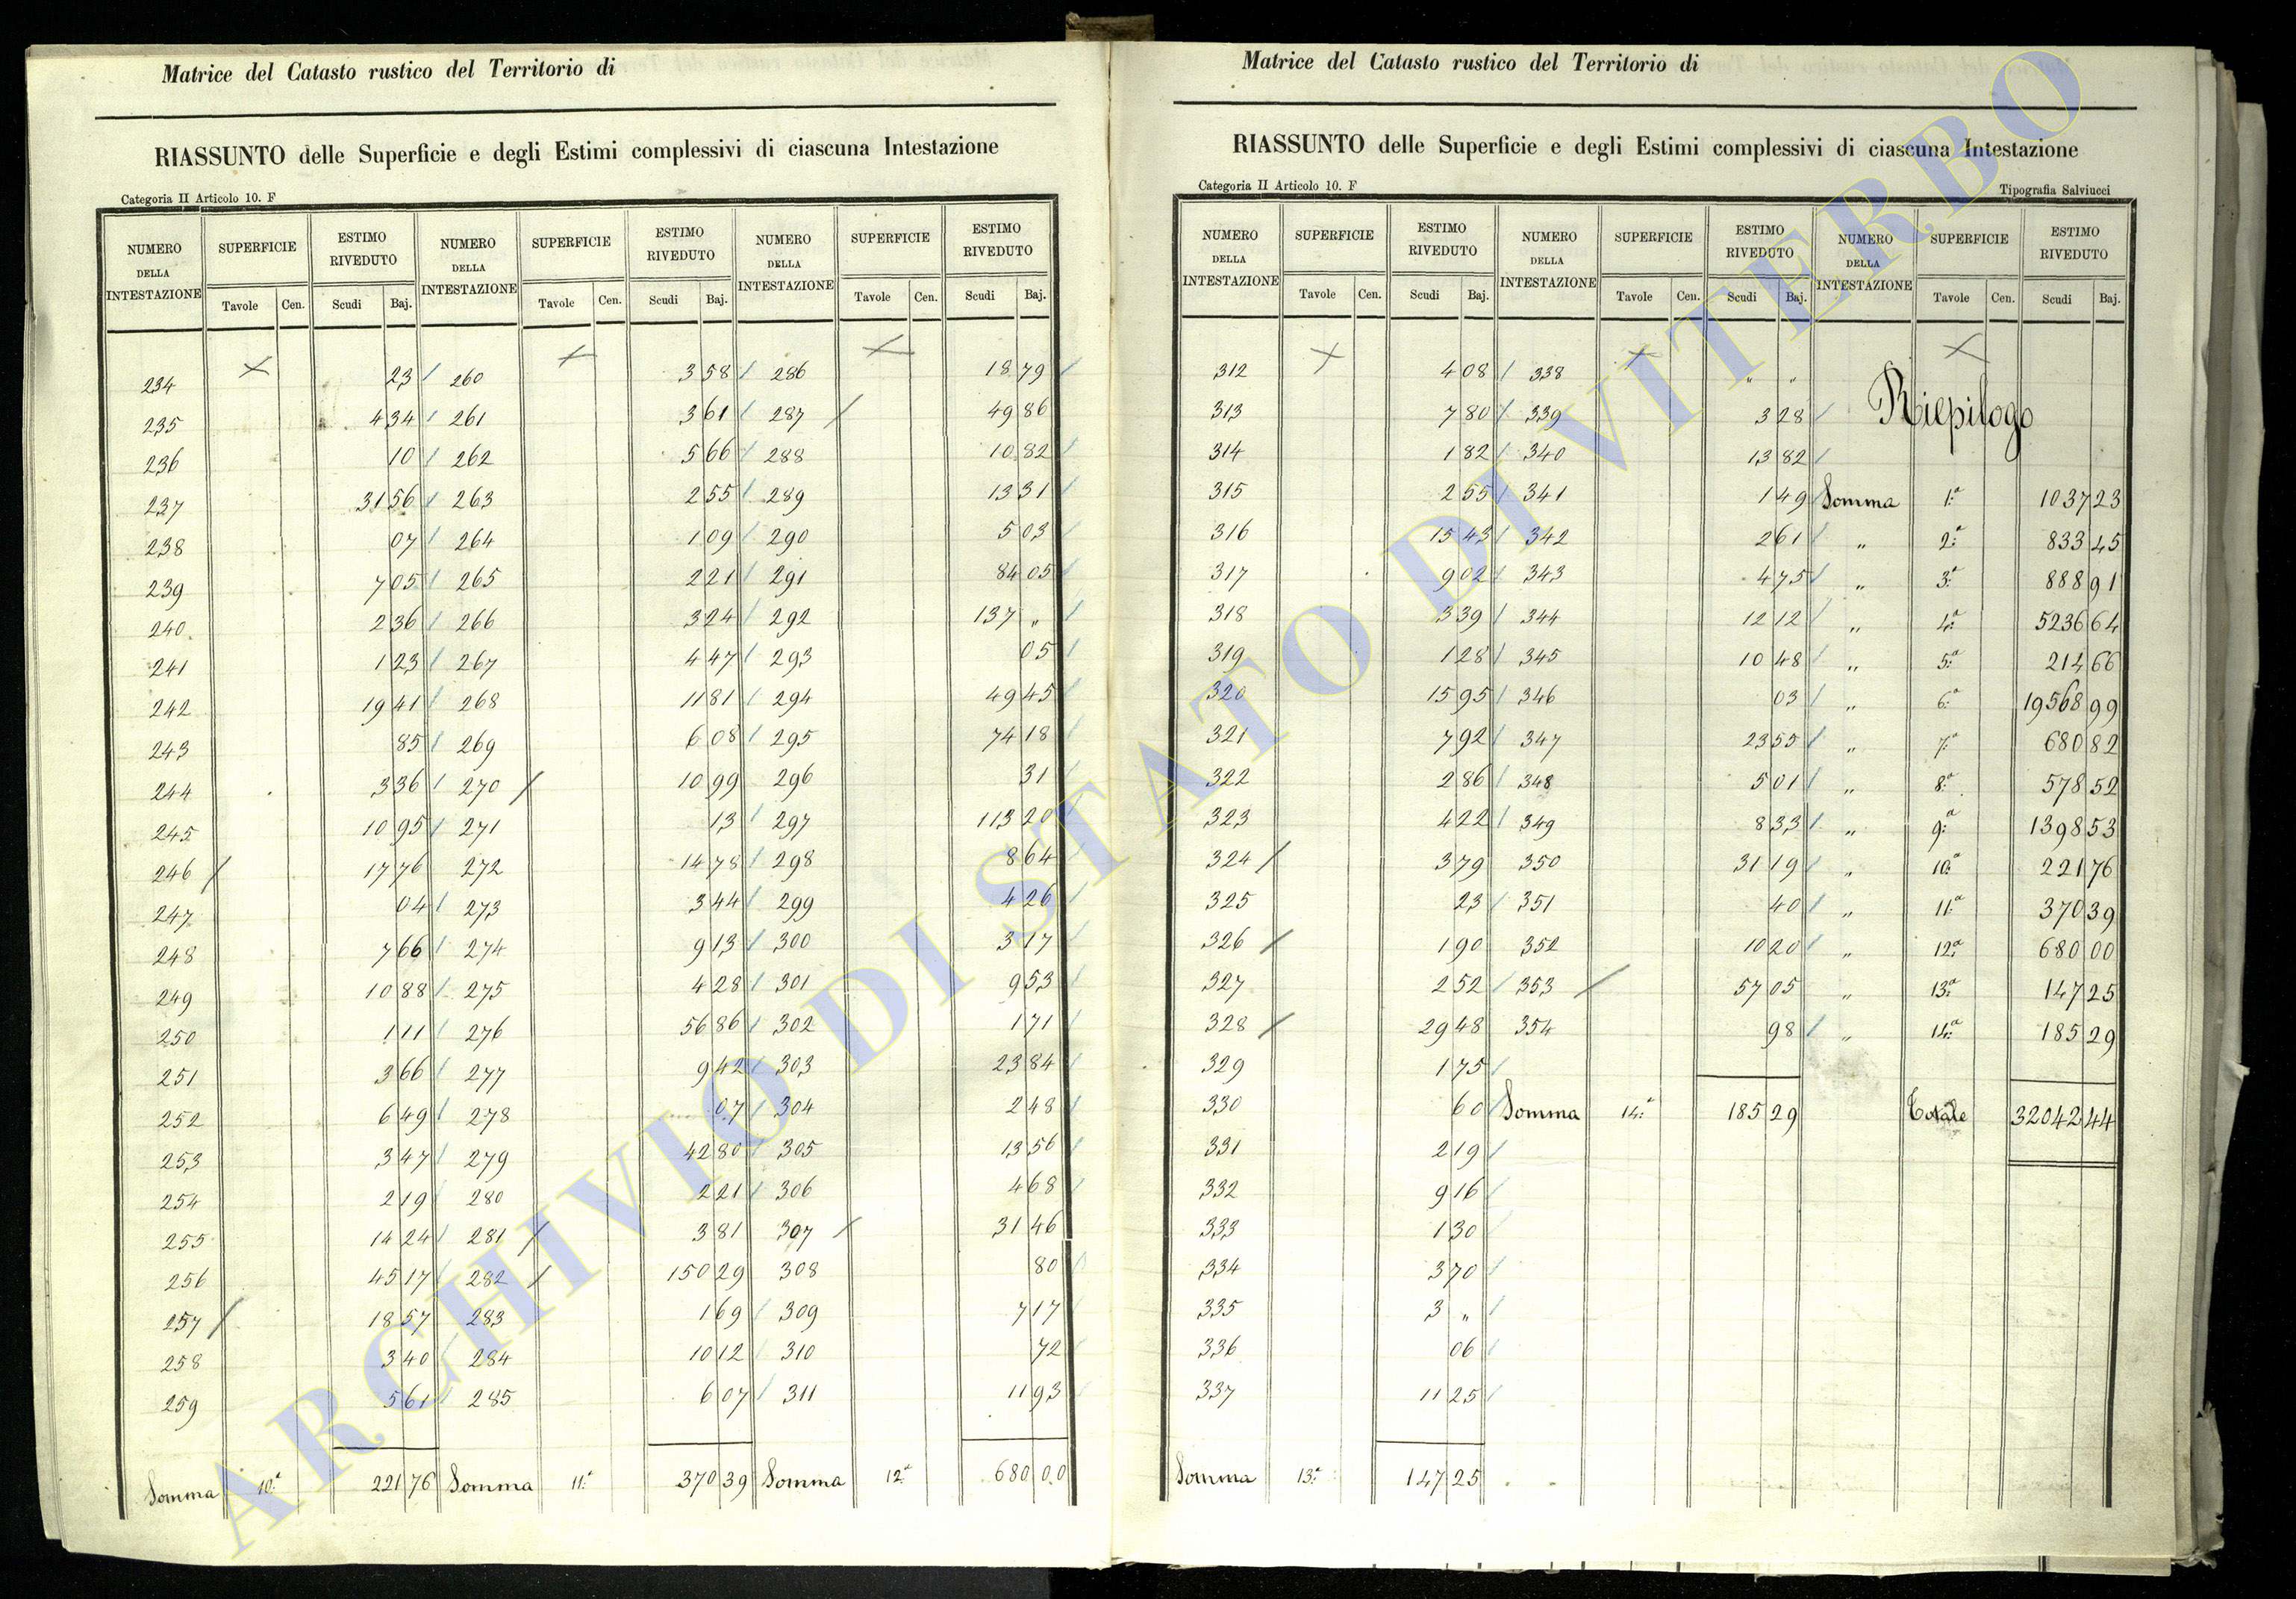 Matrice del Catasto rustico del Territorio di
RIASSUNTO delle Superficie e degli Estimi complessivi di ciascuna Intestazione
Categoria II Articolo 10. F
NUMERO DELLA INTESTAZIONE SUPERFICIE ESTIMO RIVEDUTO NUMERO DELLA INTESTAZIONE SUPERFICIE ESTIMO RIVEDUTO NUMERO DELLA INTESTAZIONE SUPERFICIE ESTIMO RIVEDUTO
Tavole Cen. Scudi Baj. Tavole Cen. Scudi Baj. Tavole Cen. Scudi Baj.
234 23 260 3 58 286 18 79
235 4 34 261 3 61 287 49 86
236 10 262 5 66 288 10 82
237 31 56 263 2 55 289 13 31
238 07 264 1 09 290 5 03
239 7 05 265 2 21 291 84 05
240 2 36 266 3 24 292 137 "
241 1 23 267 4 47 293 05
242 19 41 268 11 81 294 49 45
243 85 269 6 08 295 74 18
244 3 36 270 10 99 296 31
245 10 95 271 13 297 113 20
246 17 76 272 14 78 298 8 64
247 04 273 3 44 299 4 26
248 7 66 274 9 13 300 3 17
249 10 88 275 4 28 301 9 53
250 1 11 276 56 86 302 1 71
251 3 66 277 9 42 303 23 84
252 6 49 278 07 304 2 48
253 3 47 279 42 80 305 13 56
254 2 19 280 2 21 306 4 68
255 14 24 281 3 81 307 31 46
256 45 17 282 150 29 308 80
257 18 57 283 1 69 309 7 17
258 3 40 284 10 12 310 72
259 5 61 285 6 07 311 11 93
Somma 10.ª 221 76 Somma 11.ª 370 39 Somma 12.ª 680 00
Matrice del Catasto rustico del Territorio di
RIASSUNTO delle Superficie e degli Estimi complessivi di ciascuna Intestazione
Categoria II Articolo 10. F Tipografia Salviucci
NUMERO DELLA INTESTAZIONE SUPERFICIE ESTIMO RIVEDUTO NUMERO DELLA INTESTAZIONE SUPERFICIE ESTIMO RIVEDUTO NUMERO DELLA INTESTAZIONE SUPERFICIE ESTIMO RIVEDUTO
Tavole Cen. Scudi Baj. Tavole Cen. Scudi Baj. Tavole Cen. Scudi Baj.
312 4 08 338 " "
313 7 80 339 3 28 Riepilogo
314 1 82 340 13 82
315 2 55 341 1 49 Somma 1.ª 1037 23
316 15 43 342 2 61 " 2.ª 833 45
317 9 02 343 4 75 " 3.ª 888 91
318 3 39 344 12 12 " 4.ª 5236 64
319 1 28 345 10 48 " 5.ª 214 66
320 15 95 346 03 " 6.ª 19568 99
321 7 92 347 23 55 " 7.ª 680 82
322 2 86 348 5 01 " 8.ª 578 52
323 4 22 349 8 33 " 9.ª 1398 53
324 3 79 350 31 19 " 10.ª 221 76
325 23 351 40 " 11.ª 370 39
326 1 90 352 10 20 " 12.ª 680 00
327 2 52 353 57 05 " 13.ª 147 25
328 29 48 354 98 " 14.ª 185 29
329 1 75
330 60 Somma 14.ª 185 29 Totale 32042 44
331 2 19
332 9 16
333 1 30
334 3 70
335 3 "
336 06
337 11 25
Somma 13.ª 147 25
ARCHIVIO DI STATO DI VITERBO